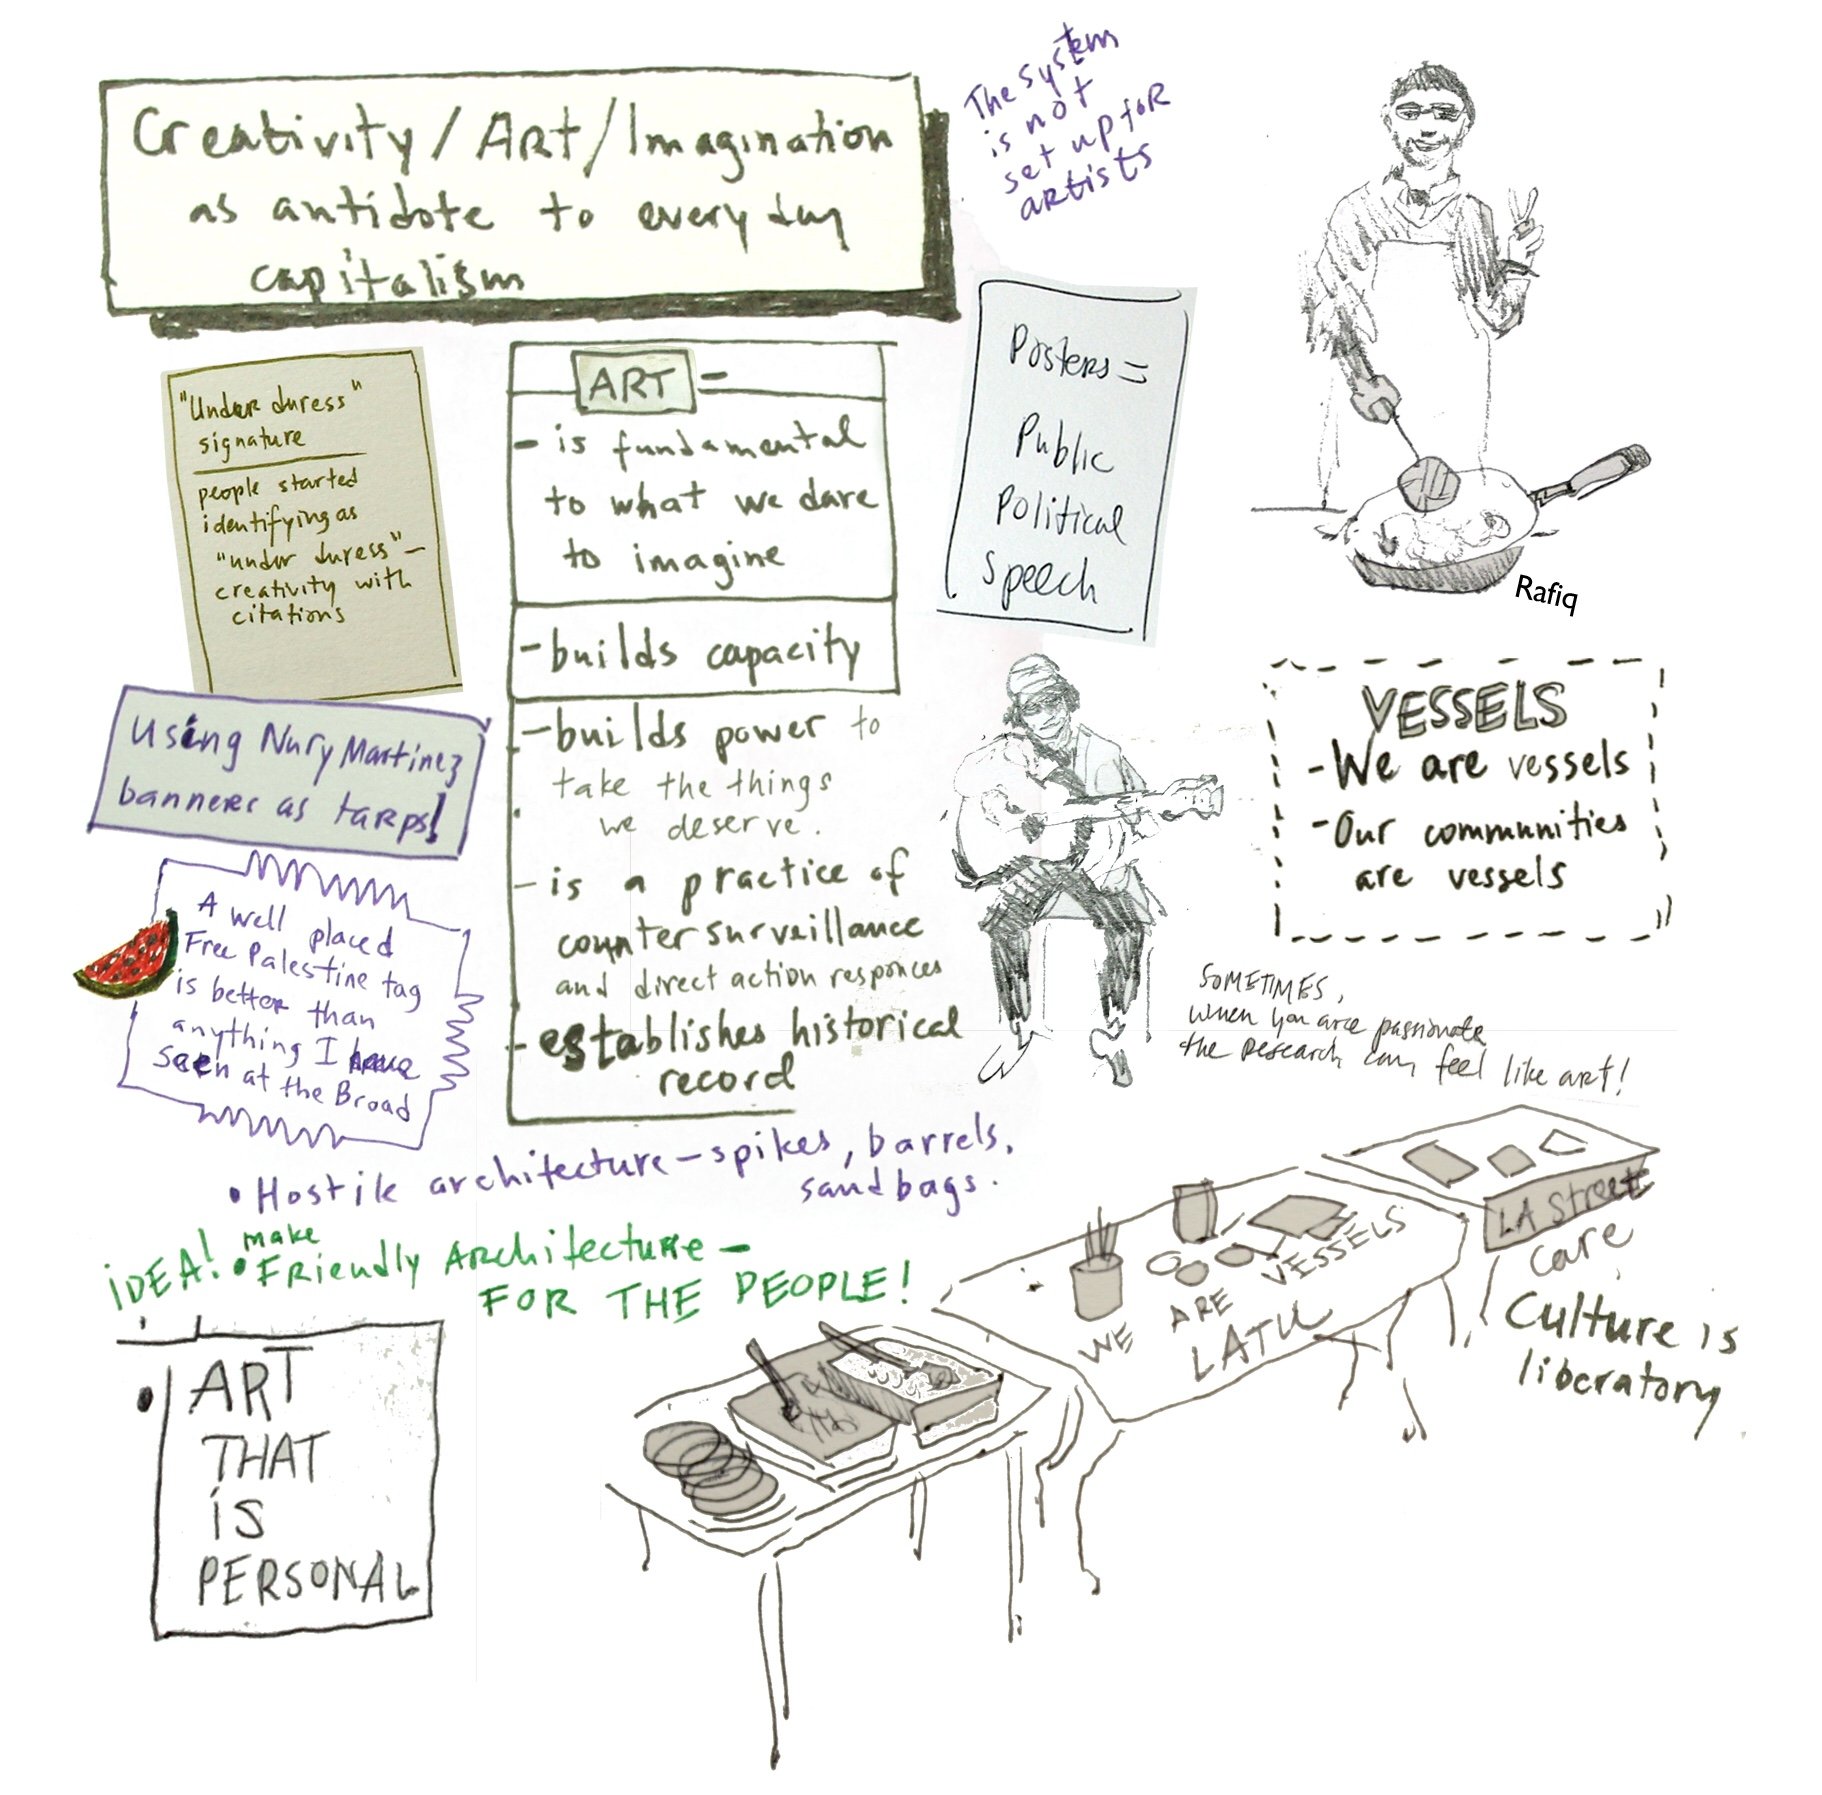 Creativity/Art/Imagination
as antidote to everyday
capitalism
The system
is not
set up for
artists
"Under duress"
signature
people started
identifying as
"under duress"—
creativity with
citations
ART =
- is fundamental
to what we dare
to imagine
- builds capacity
- builds power to
take the things
we deserve.
- is a practice of
counter surveillance
and direct action responces
- establishes historical
record
Posters =
Public
Political
Speech
Rafiq
Using Nury Martinez
banners as tarps!
A well placed
Free Palestine tag
is better than
anything I have
seen at the Broad
VESSELS
- We are vessels
- Our communities
are vessels
SOMETIMES,
when you are passionate
the research can feel like art!
• Hostile architecture – spikes, barrels,
sandbags.
iDEA! • make
Friendly Architecture –
FOR THE PEOPLE!
• ART
THAT
iS
PERSONAL
WE ARE VESSELS
LATU
LA Street
Care
Culture is
liberatory